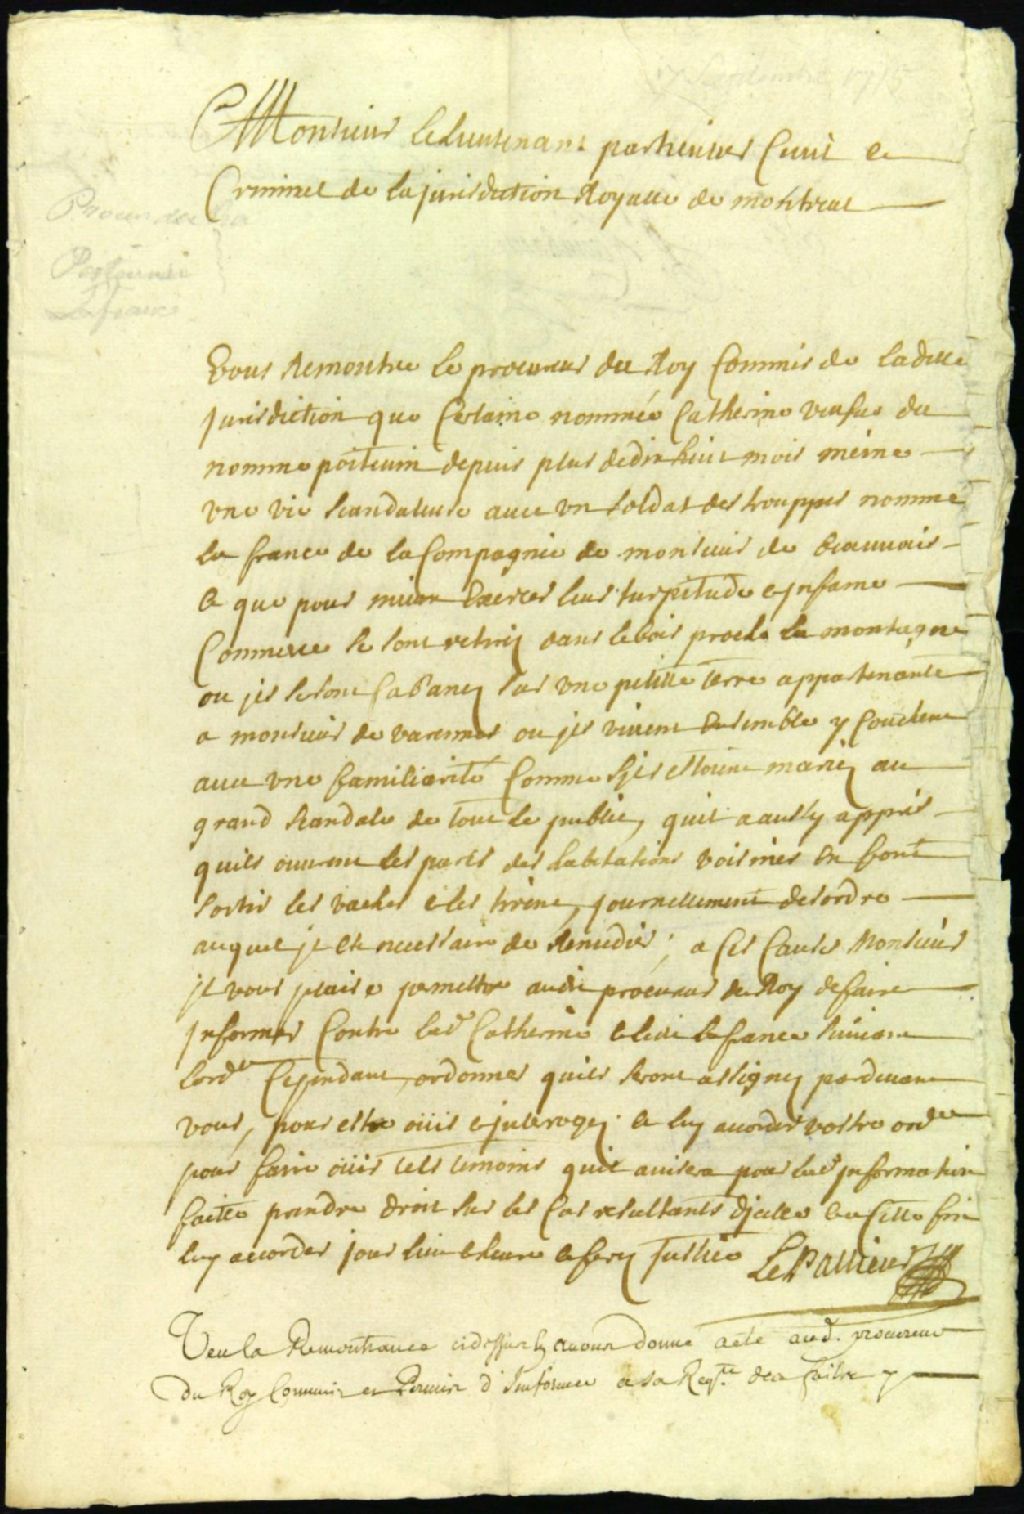 17 Septembre 1715
Monsieur le lieutenant particulier Civil et
Criminel de la jurisdiction Royalle de montreal
Poitevin
Lafrance
Vous Remontre le procureur du Roy Commis de laditte
jurisdiction que Certaine nommée Catherine veufue du
nommé poitevin depuis plus dedix huit mois meine
vne vie scandaleuse auec vn soldat des trouppes nommé
la france de la Compagnie de monsieur de beauuais
et que pour mieux Exercer leur turpitude et jnfame
Commerce se sont retirez dans le bois proche la montagne
ou jls se sont Cabanez sur vne petitte terre appartenante
a monsieur de varennes ou jls viuent Ensemble y Couchent
auec vne familiarité Comme sjls estoient mariez au
grand scandale de tout le public, quil a aussy appris
quils ouurent les parcs des habitations voisines En font
sortir les vaches et les tirent, journellement desordre
auquel jl est necessaire de Remedier; a Ces Causes Monsieur
jl vous plaise permettre audit procureur du Roy de faire
jnformer Contre lad. Catherine et ledit lafrance suiuant
lordce Cependant, ordonner quils seront assignez pardeuant
vous, pour estre ouis et jnterogez. et luy accorder vostre ordce
pour faire ouir tels temoins quil auisera pour lad jnformation
faitte prandre droit sur les Cas resultants djcelle et a Cette fin
luy accorder jour lieu et heure et ferez Justice LePallieur
Veu la Remontrance cidessus Nous auons donné acte aud. procureur
du Roy Commis et Permis d'Informer a sa Reqte des faits y